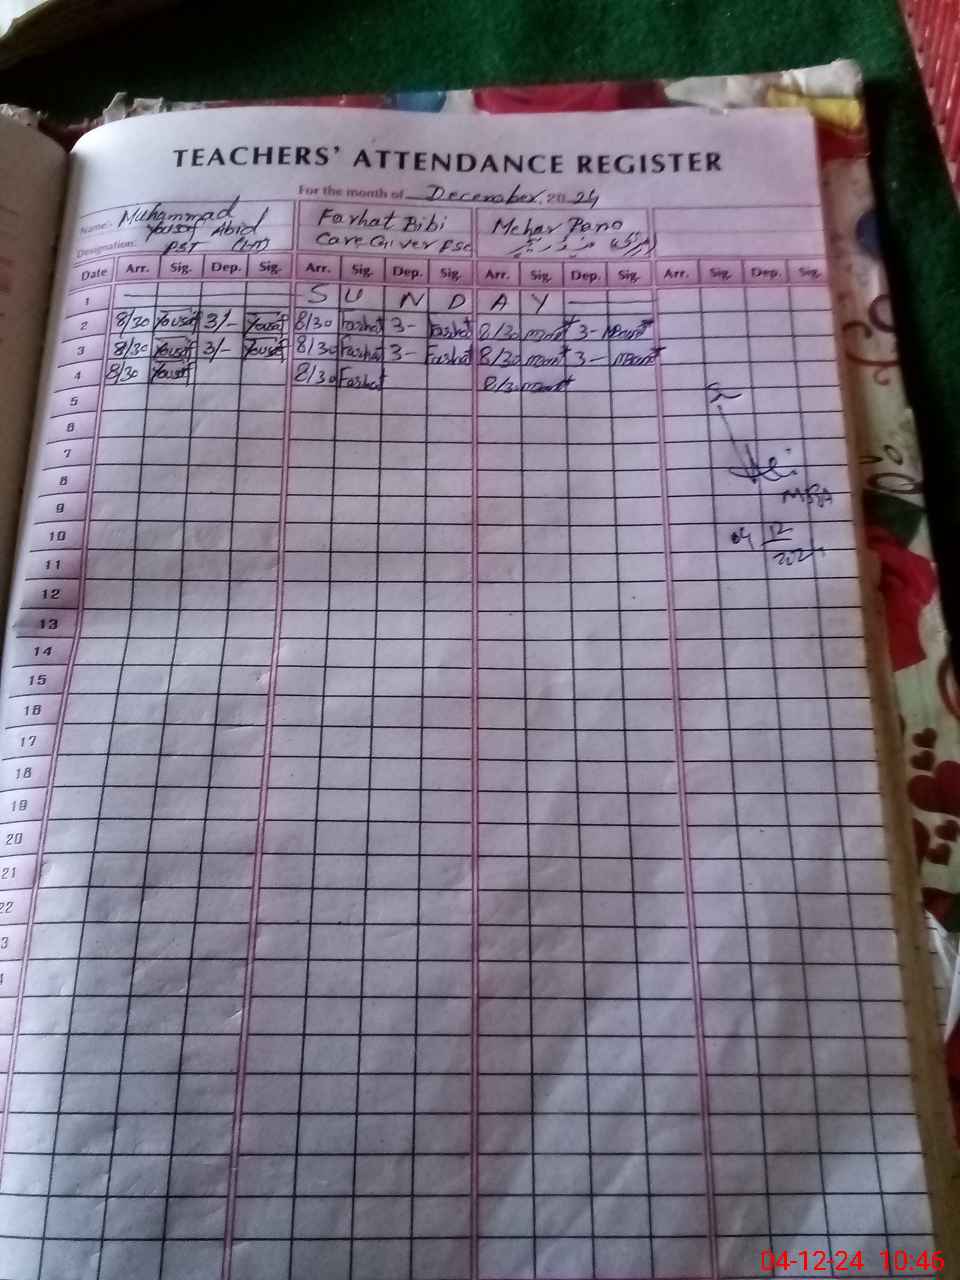 TEACHERS' ATTENDANCE REGISTER
For the month of December 2024
Name:- Muhammad Yousaf Abid Farhat Bibi Mehar Bano
Designation: PST (HT) Care Giver ESC
Date Arr. Sig. Dep. Sig. Arr. Sig. Dep. Sig. Arr. Sig. Dep. Sig. Arr. Sig. Dep. Sig.
1 S U N D A Y
2 8/30 Yousaf 3/- Yousaf 8/30 Farhat 3- Farhat 8/30 3-
3 8/30 Yousaf 3/- Yousaf 8/30 Farhat 3- Farhat 8/30 3-
4 8/30 Yousaf 8/30 Farhat 8/30
5
6
7
8
9
10
11
12
13
14
15
16
17
18
19
20
21
22
3
MEA
04 12 2024
04-12-24 10:46